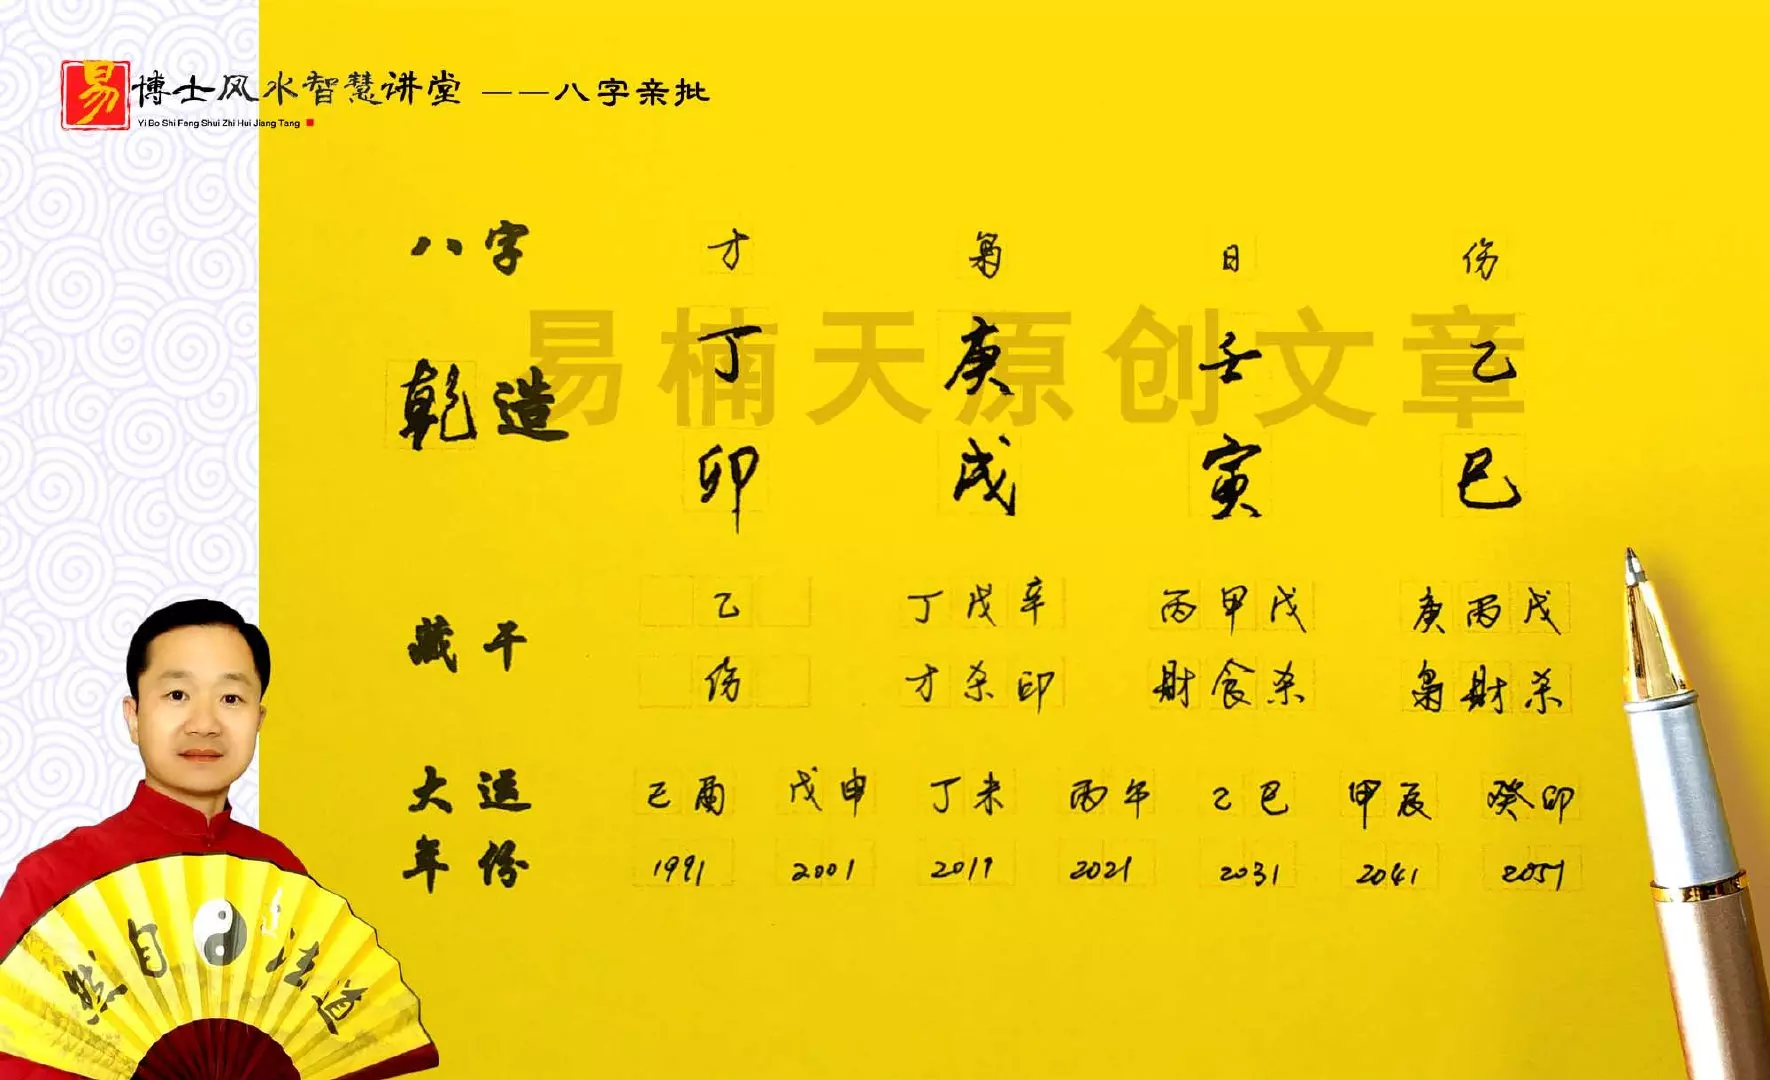 易 博士风水智慧讲堂 ——八字亲批
Yi Bo Shi Feng Shui Zhi Hui Jiang Tang
八字 才 枭 日 伤
易楠天原创文章
乾造 丁 庚 壬 乙
卯 戌 寅 巳
藏干 乙 丁戊辛 丙甲戊 庚丙戊
伤 才杀印 财食杀 枭财杀
大运 己酉 戊申 丁未 丙午 乙巳 甲辰 癸卯
年份 1991 2001 2011 2021 2031 2041 2051
道法自然